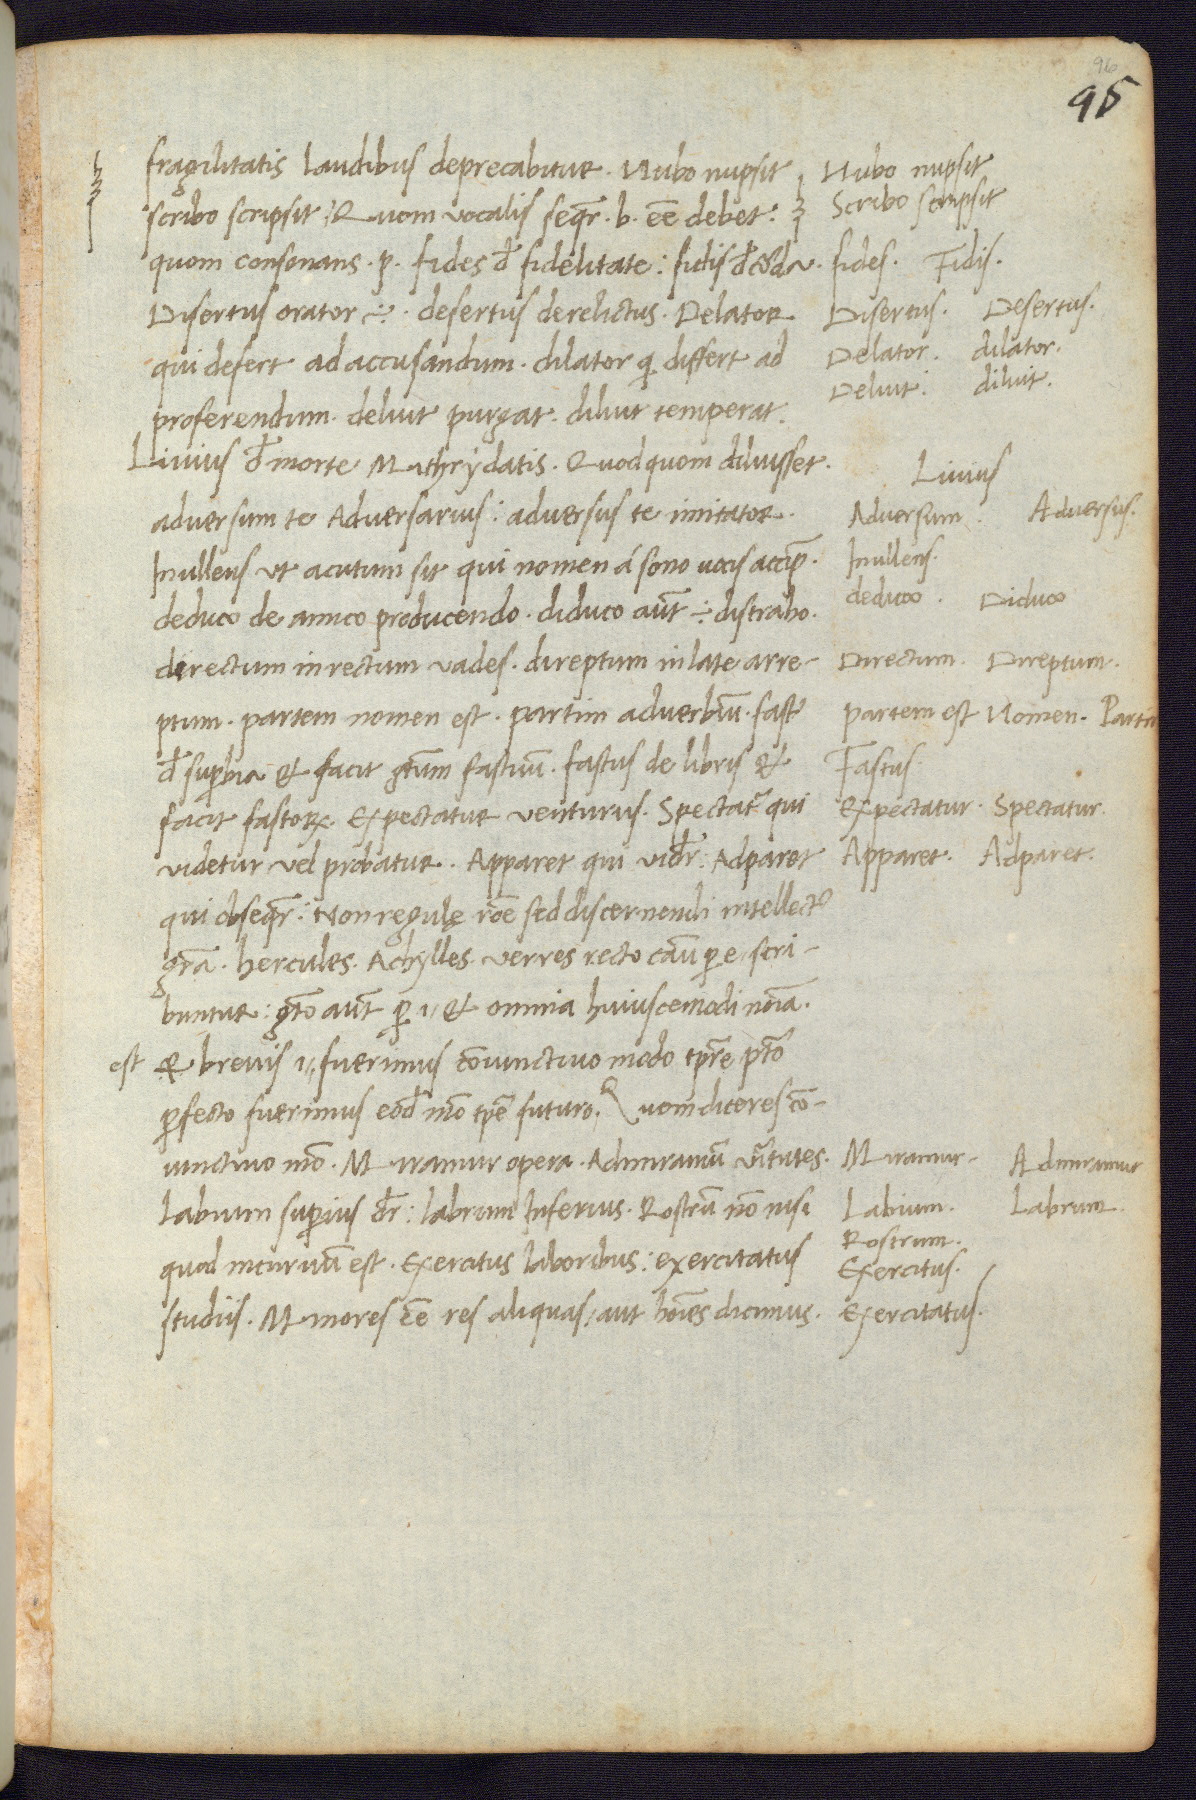 96
95
fragilitatis laudibus deprecabitur. Nubo nupsit
scribo scripsit: Quom vocalis seqr̄. b. eē debet:
quom consonans. p. fides đ fidelitate: fidis đ
Disertus orator ÷. desertus derelictus. Delator
qui defert ad accusandum. dilator q differt ad
proferendum. deluit purgat. diluit temperat.
Livius đ morte Mithrydatis. Quod quom diluisset.
adversum te Adversarius: adversus te imitator.
Inullens ut acutum sit qui nomen á sono vocis accip̄.
deduco de amico producendo. diduco aūt ÷ distraho.
directum in rectum vades. direptum in late arre-
ptum. partem nomen est. partim adverbiū. fast9
đ sup̄bia & facit gtūm fastuū. fastus de libris &
facit fastoꝝ. Expectatur venturus. Spectat̄ qui
videtur vel probatur. Apparet qui vidr̄. Adparet
qui obseqr̄: Non regulę rōe sed discernendi intellect9
grā. hercules. Achylles. verres recto cāu p̄ e, scri-
buntur: gtō aūt p̄ i, & omnia huiuscemodi nōia.
est & brevis i, fuerimus cōiunctivo modo tp̄re p̄tō
p̄fecto fuerimus eōđ mō tp̄e futuro. Quom diceres cō-
iunctivo mō. Miramur opera. Admiramū v̄tutes.
Labium sup̄ius dr̄: labrum Inferius. Rostrū nō nisi
quod incurvū est. Exercitus laboribus: exercitatus
studiis. Mīmores eē res aliquas, aut hoīes dicimus.
Nubo nupsit
Scribo scripsit
fides. Fidis.
Disertus. Desertus.
Delator. dilator.
Deluit: diluit.
Livius
Adversum. Adversus.
Inullens.
deduco. Diduco
Directum. Direptum.
partem est Nomen. Parti
Fastus.
Expectatur. Spectatur.
Apparet. Adparet.
Miramur. Admiramur
Labium. Labrum.
Rostrum.
Exercitus.
Exercitatus.